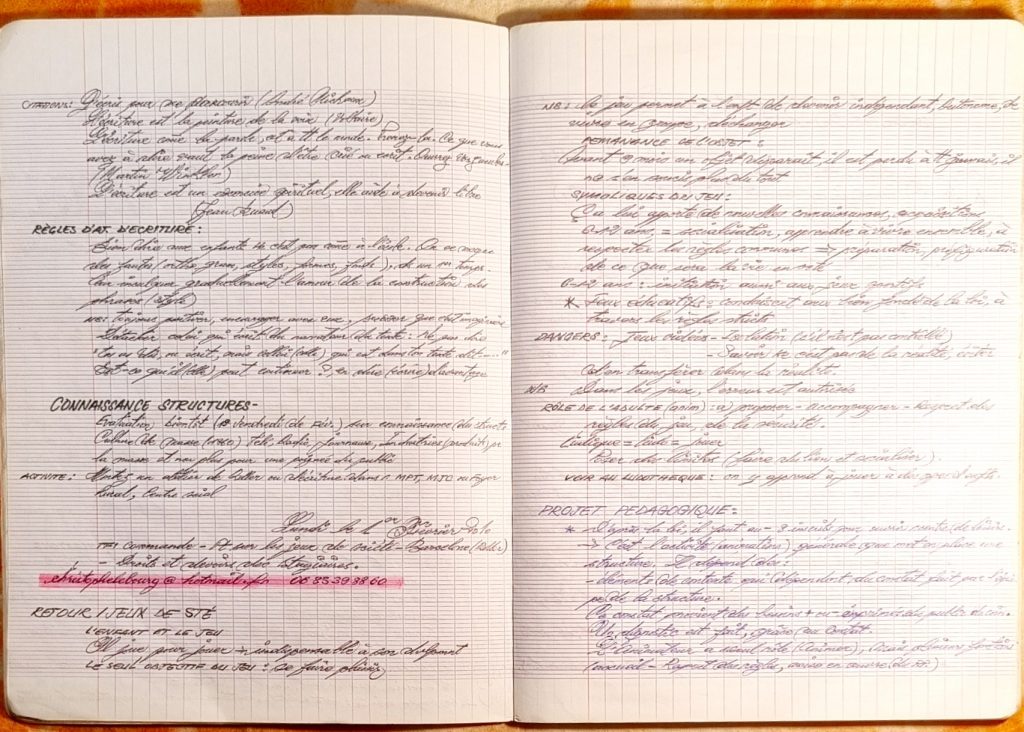 CITATIONS: J'écris pour me parcourir (André Michaux)
L'écriture est la peinture de la voix (Voltaire)
L'écriture comme la parole, est à tt le monde. Prenez-la. Ce que vous
avez à dire vaut la peine d'être crié ou écrit. Ouvrez vos gueules.
(Martin Winckler)
L'écriture est un exercice spirituel, elle aide à devenir libre
(Jean Rouaud)
RÈGLES D'AT. D'ECRITURE:
Bien dire aux enfants ce n'est pas comme à l'école. On se moque
des fautes (ortho, gram, styles, formes, ), ds un 1er temps.
inculquer graduellement l'amour de la construction des
phrases (style)
NB: toujours positiver, encourager avec eux, préciser que c'est imaginaire
Détacher celui qui écrit du narrateur du texte: Ne pas dire
"Tu as dit, ou écrit, mais celui (celle) qui est dans ton texte dit --- "
Est-ce qu'il (elle) peut continuer?, en dire (écrire) davantage
CONNAISSANCE STRUCTURES-
Evaluation bientôt (19 vendredi de Fév.) sur connaissance des structs
Culture de masse (1960) Télé, Radio, Journaux, Industries (produits) pr
la masse et non plus pour une poignée du public
ACTIVITE: Monter un atelier de d'écriture dans 1 MPT, MJC ou Foyer
Rural, Centre social
Lundi le 1er Février 2010
TP1 commande - At sur les jeux de société - Barcelone
- Droits et devoirs des stagiaires.
christophelebourg@hotmail.fr 06 35 39 38 60
RETOUR / JEUX DE STÉ
L'ENFANT ET LE JEU
Il joue pour jouer → indispensable à son dvlpment
LE SEUL OBJECTIF DU JEU: se faire plaisir
NB: Le jeu permet à l'enft de devenir indépendant, autonome, de
vivre en groupe, d'échanger
PERMANANCE DE L'OBJET:
Avant 9 mois un objet disparaît, il est perdu à tt jamais, il
ne s'en soucie plus du tout
SYMBOLIQUES DU JEU:
Ça lui apporte de nouvelles connaissances, acquisitions
0-12 ans = socialisation, apprendre à vivre ensemble, à
respecter les règles communes ⇒ préparation, préfiguration
de ce que sera la vie en sté
0-12 ans: initiation aussi aux jeux sportifs
* Jeux éducatifs: conduisent au bien fondé de la loi, à
travers les règles stricts
DANGERS: Jeux vidéos - Isolation (s'il n'est pas contrôlé)
- Savoir que ce n'est pas de la réalité, éviter
d'en transférer dans la réalité.
NB Dans les jeux, l'erreur est autorisée
RÔLE DE L'ADULTE (anim): a) proposer - accompagner - Respect des
règles du jeu, de la sécurité.
Ludique = ludo = jouer
Poser des limites (faire du lien et ).
VOIR AU LUDOTHEQUE: on y apprend à jouer à des gros d'enfts.
PROJET PEDAGOGIQUE:
* D'après la loi, il faut au - 8 inscrits pour ouvrir centre de loisirs.
→ C'est l'activité (animation) générale que met en place une
structure. Il dépend des:
- éléments de contexte qui dépendent du constat fait par l'équi-
pe de la structure.
Un constat provient des besoins + ou - exprimés du public du cen.
Un diagnostic est fait, grâce au constat.
L'animateur a 1 seul rôle (animer), mais plusieurs fonctions
(accueil - Respect des règles, mise en œuvre du PP)